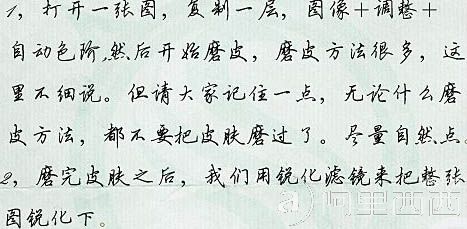 1，打开一张图，复制一层，图像+调整+
自动色阶,然后开始磨皮，磨皮方法很多，这
里不细说。但请大家记住一点，无论什么磨
皮方法，都不要把皮肤磨过了。尽量自然点。
2，磨完皮肤之后，我们用锐化滤镜来把整张
图锐化下。
阿里西西